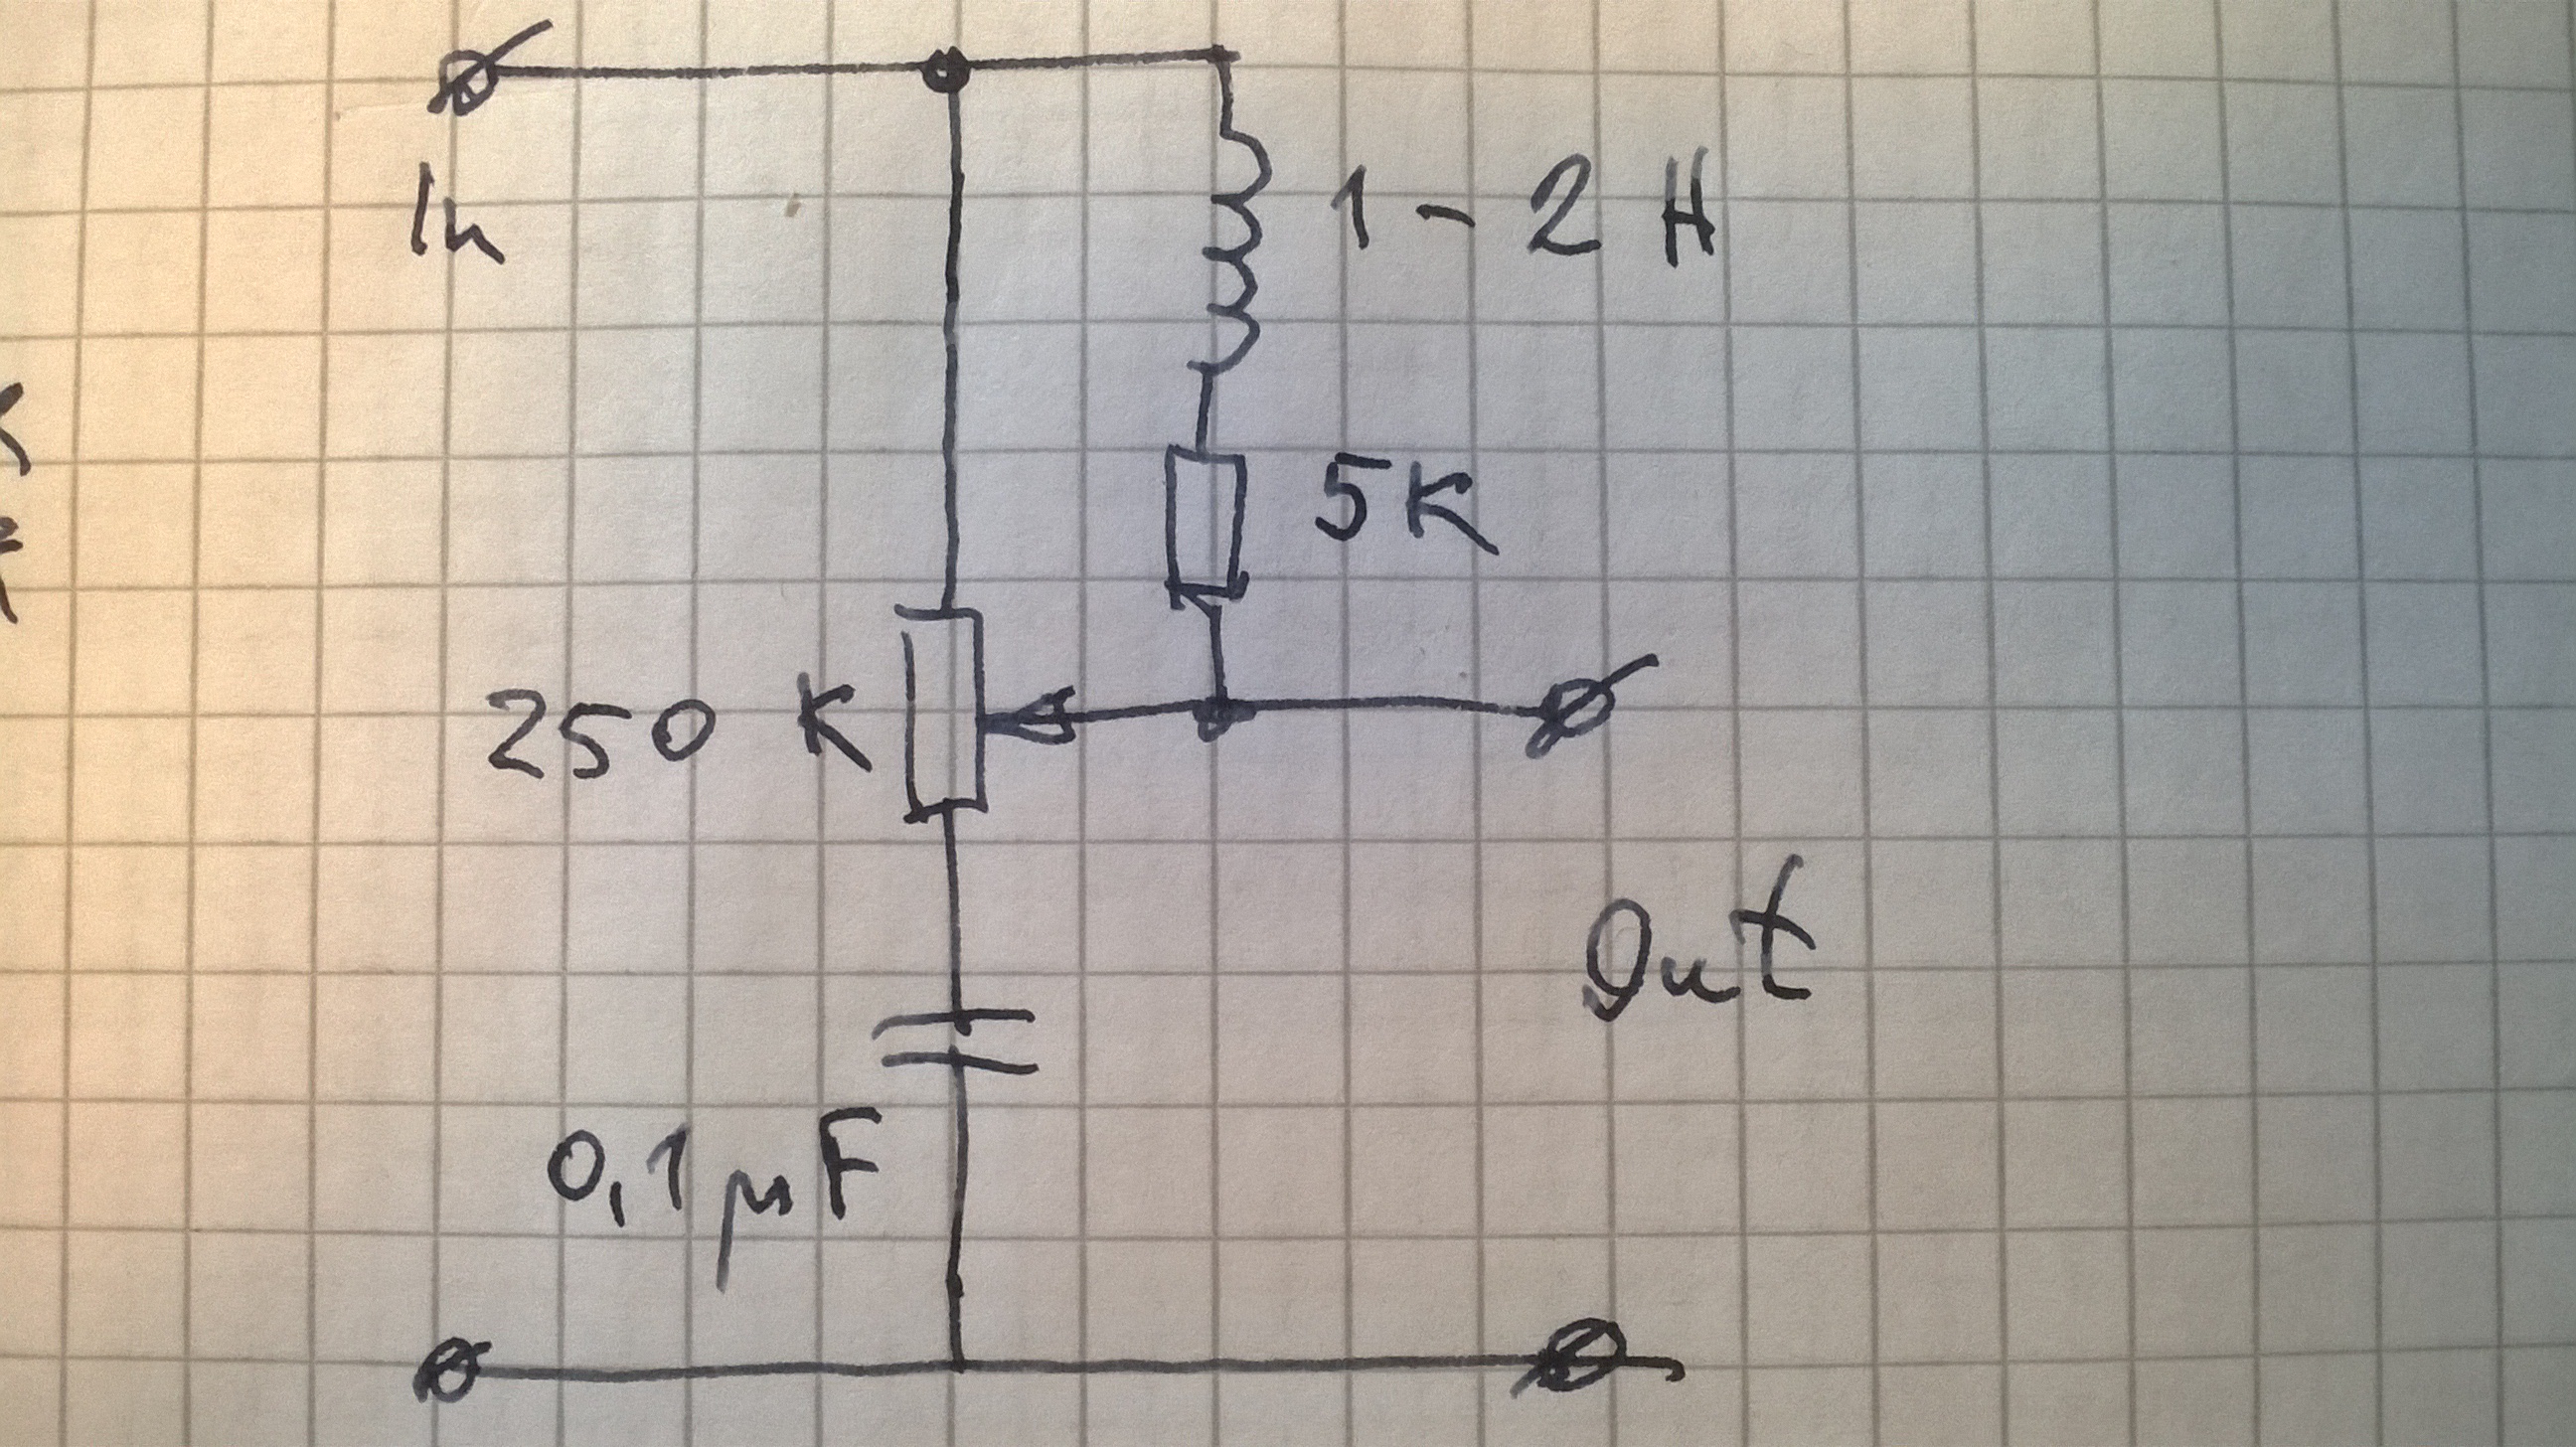 In
1-2 H
5K
250 K
Out
0,1 µF